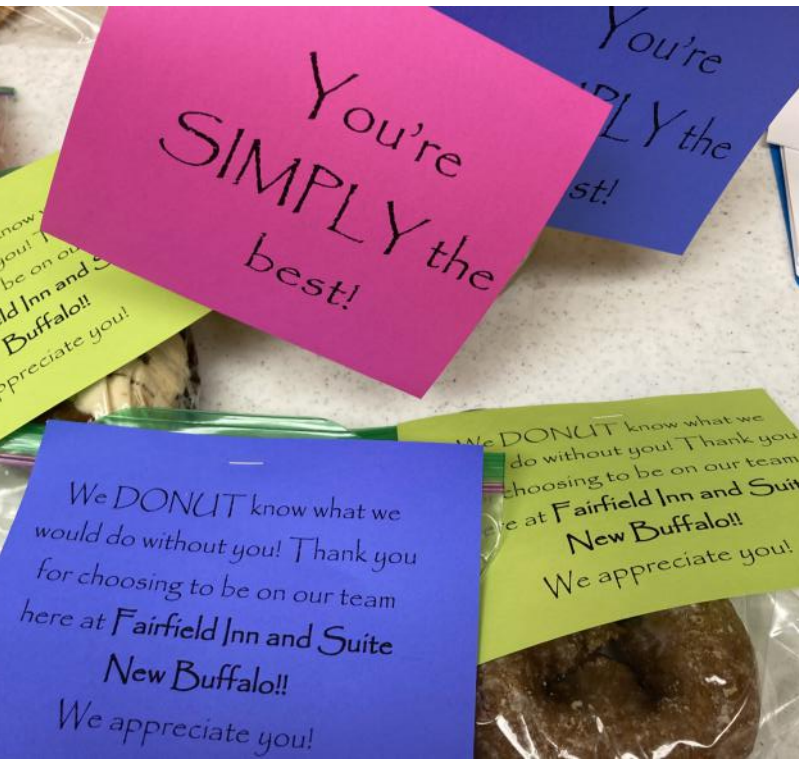 You're
SIMPLY the
best!
You're
the
know
you!
be on
Inn and
Buffalo!!
you!
We DONUT know what we
would do without you! Thank you
for choosing to be on our team
here at Fairfield Inn and Suite
New Buffalo!!
We appreciate you!
We DONUT know what we
do without you! Thank you
choosing to be on our team
at Fairfield Inn and
New Buffalo!!
We appreciate you!